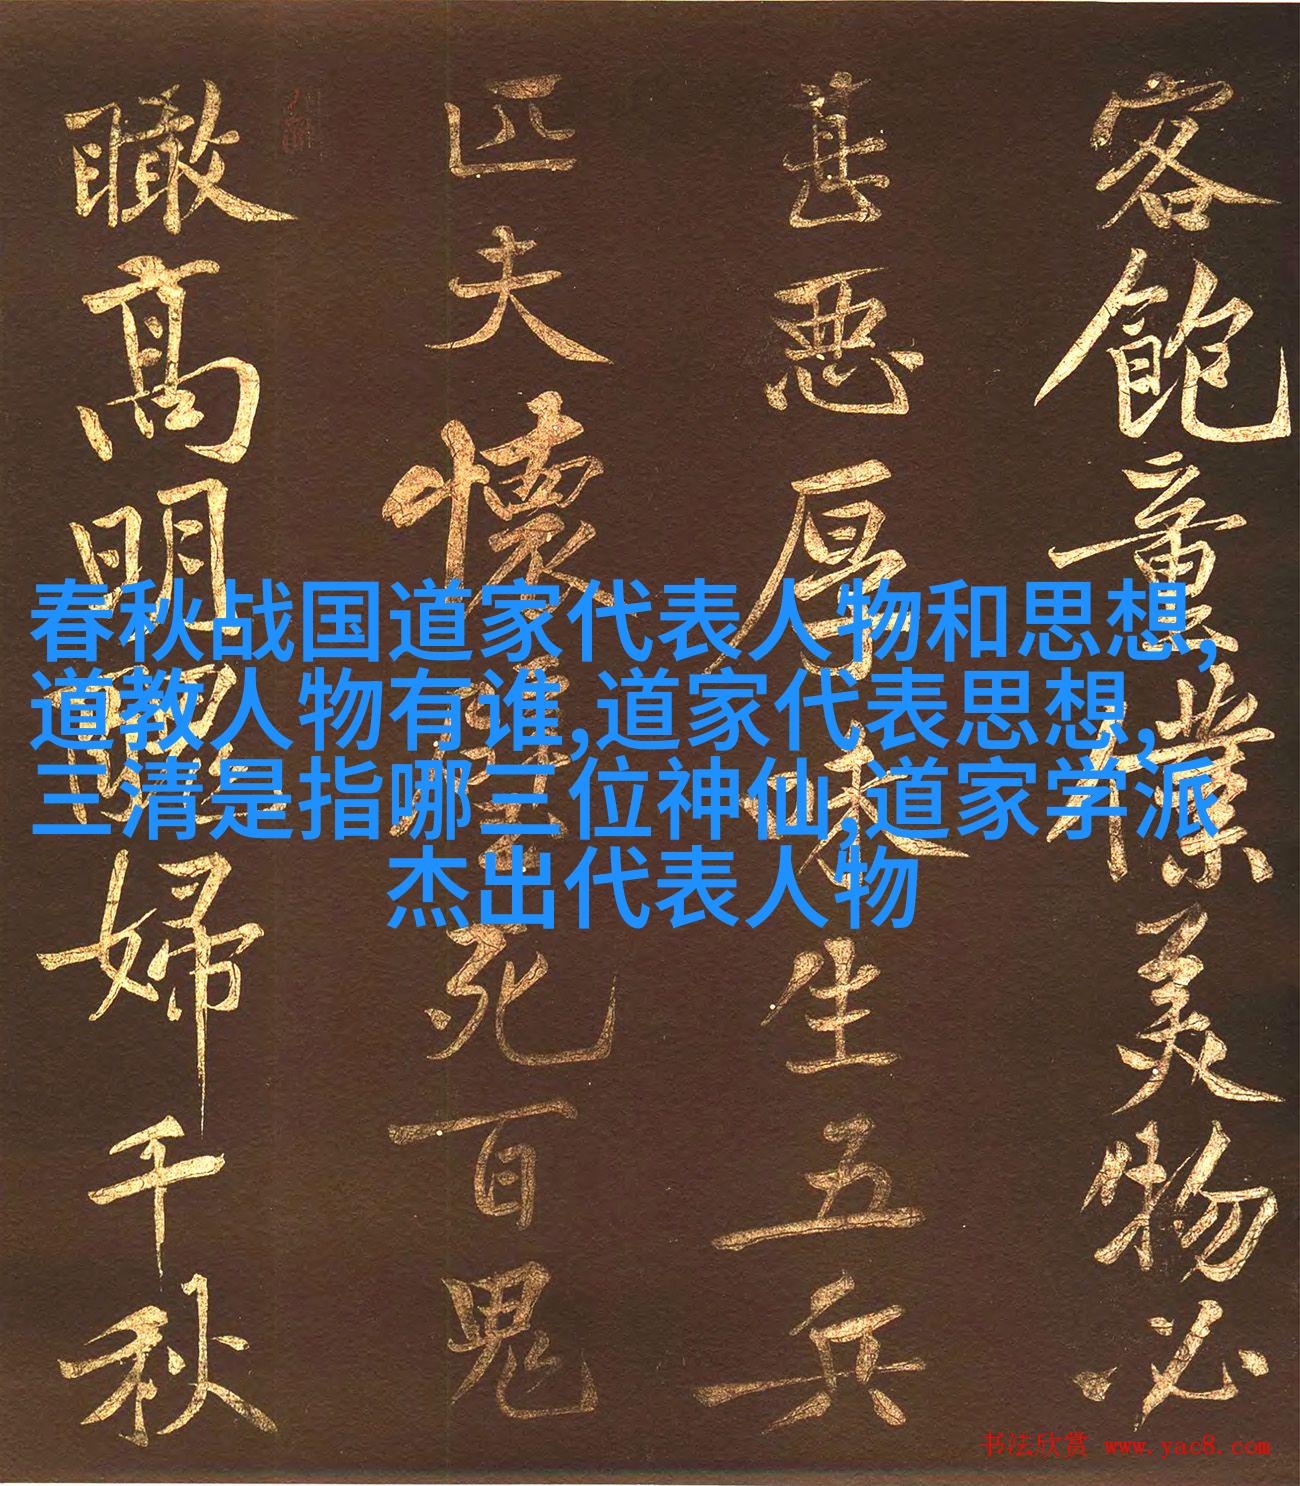 客飽童僕美物必
甚惡厚味生五兵
匹夫懷璧死百鬼
瞰高明
婦千秋
春秋战国道家代表人物和思想,
道教人物有谁,道家代表思想,
三清是指哪三位神仙,道家学派
杰出代表人物
书法欣赏 www.yac8.com